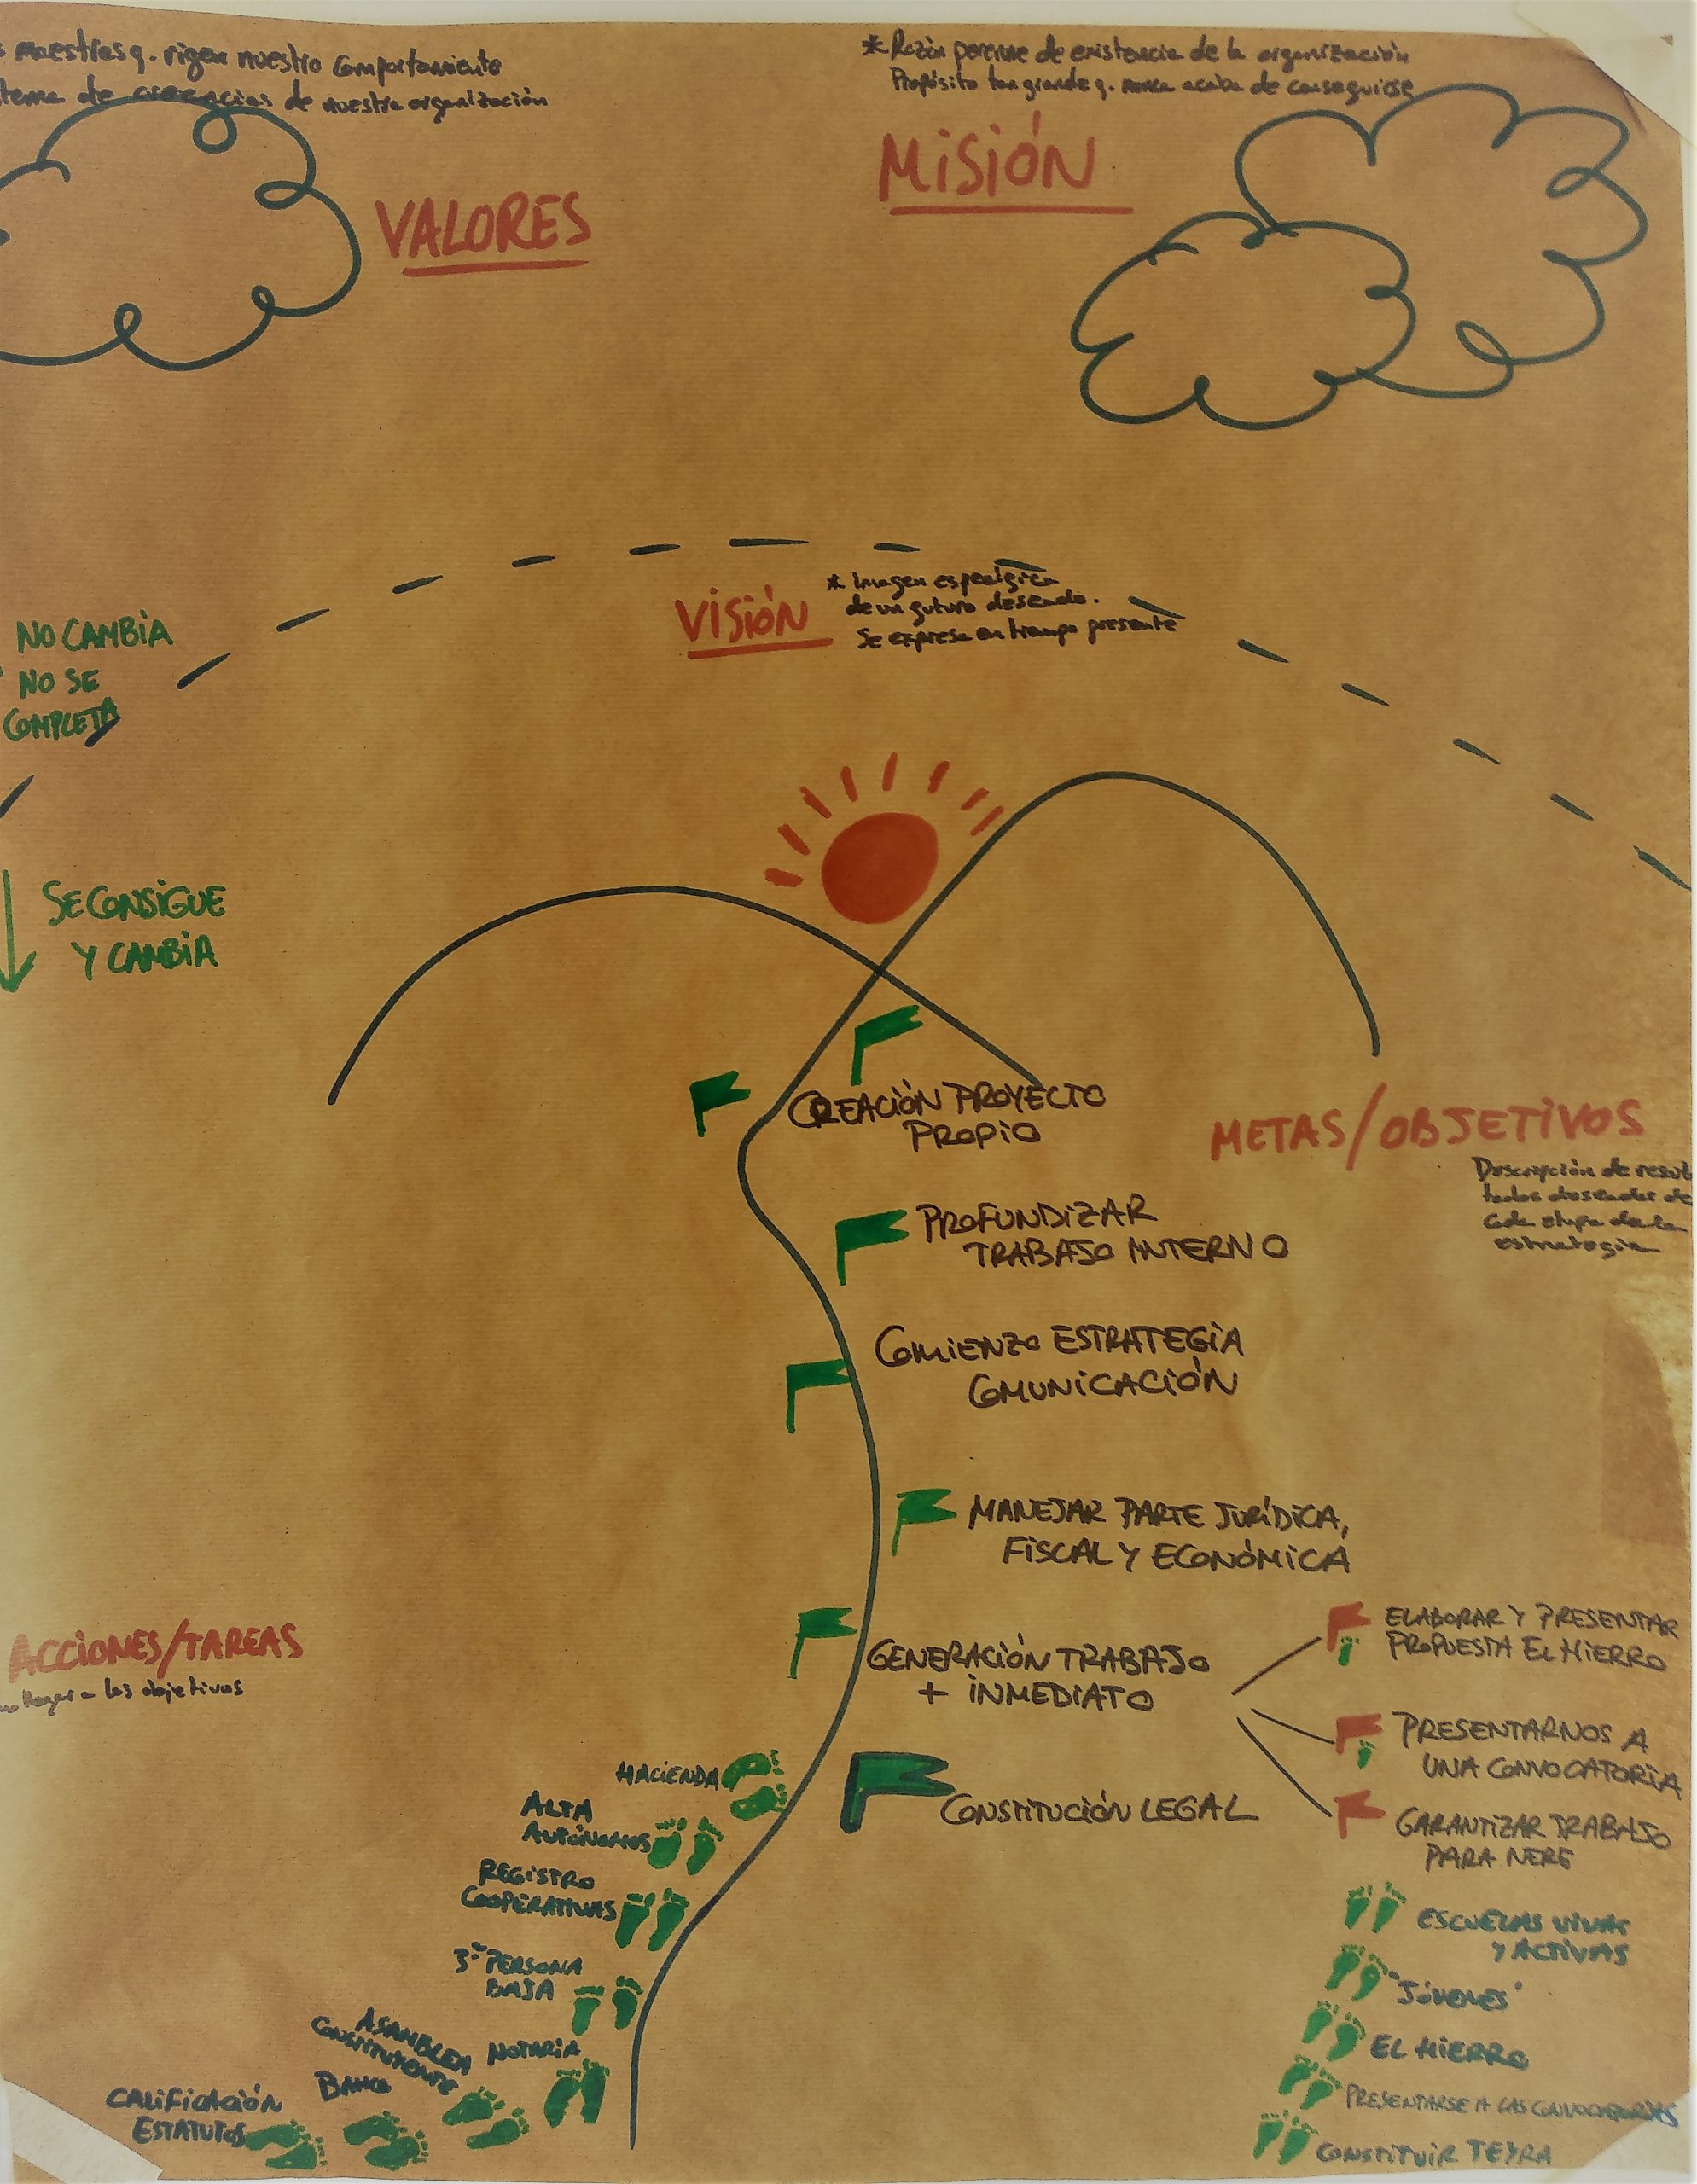 maestras q. rigen nuestro comportamiento
tema de creencias de nuestra organización
VALORES
* Razón perenne de existencia de la organización
Propósito tan grande q. nunca acaba de conseguirse
MISIÓN
VISIÓN
* Imagen específica
de un futuro deseado.
Se expresa en tiempo presente
NO CAMBIA
NO SE
COMPLETA
SE CONSIGUE
Y CAMBIA
CREACIÓN PROYECTO
PROPIO
METAS/OBJETIVOS
Descripción de resul
tados deseados de
cada etapa de la
estrategia
PROFUNDIZAR
TRABAJO INTERNO
COMIENZO ESTRATEGIA
COMUNICACIÓN
MANEJAR PARTE JURÍDICA,
FISCAL Y ECONÓMICA
GENERACIÓN TRABAJO
+ INMEDIATO
ELABORAR Y PRESENTAR
PROPUESTA EL HIERRO
PRESENTARNOS A
UNA CONVOCATORIA
GARANTIZAR TRABAJO
PARA NERE
CONSTITUCIÓN LEGAL
ACCIONES/TAREAS
llegar a los objetivos
HACIENDA
ALTA
AUTÓNOMOS
REGISTRO
COOPERATIVAS
3ª PERSONA
BAJA
NOTARIA
ASAMBLEA
CONSTITUYENTE
BANCO
CALIFICACIÓN
ESTATUTOS
ESCUELAS VIVAS
Y ACTIVAS
"JÓVENES"
EL HIERRO
PRESENTARSE A LAS CONVOCATORIAS
CONSTITUIR TEYRA